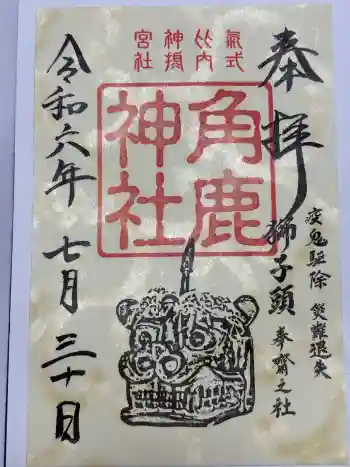 疫鬼駆除 災難退失
奉拝
獅子頭 奉齋之社
氣比神宮
式内摂社
角鹿
神社
令和六年 七月 三十日